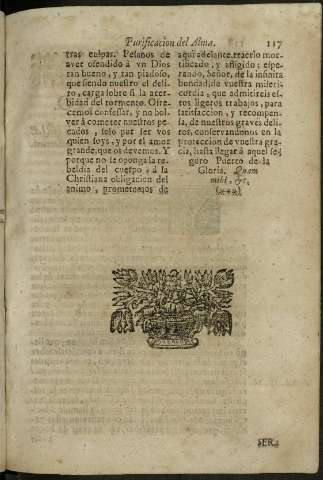 Purificacion del Alma. 117
tras culpas. Pesanos de
aver ofendido à vn Dios
tan bueno, y tan piadoso,
que siendo nuestro el deli-
to, carga sobre sì la acer-
bidad del tormento. Ofre-
cemos confessar, y no bol-
ver à cometer nuestros pe-
cados, solo por ser vos
quien soys, y por el amor
grande, que os devemos. Y
porque no se oponga la re-
beldia del cuerpo, à la
Christiana obligacion del
animo, prometemos de
aqui adelante, traerlo mor-
tificado, y afligido; espe-
rando, Señor, de la infinita
bondad, de vuestra miseri-
cordia, que admitireis es-
tos ligeros trabajos, para
satisfaccion, y recompen-
sa, de nuestros graves deli-
tos, conservandonos en la
proteccion de vuestra gra-
cia, hasta llegar à aquel se-
guro Puerto de la
Gloria. Quam
mihi, &c.
SER-